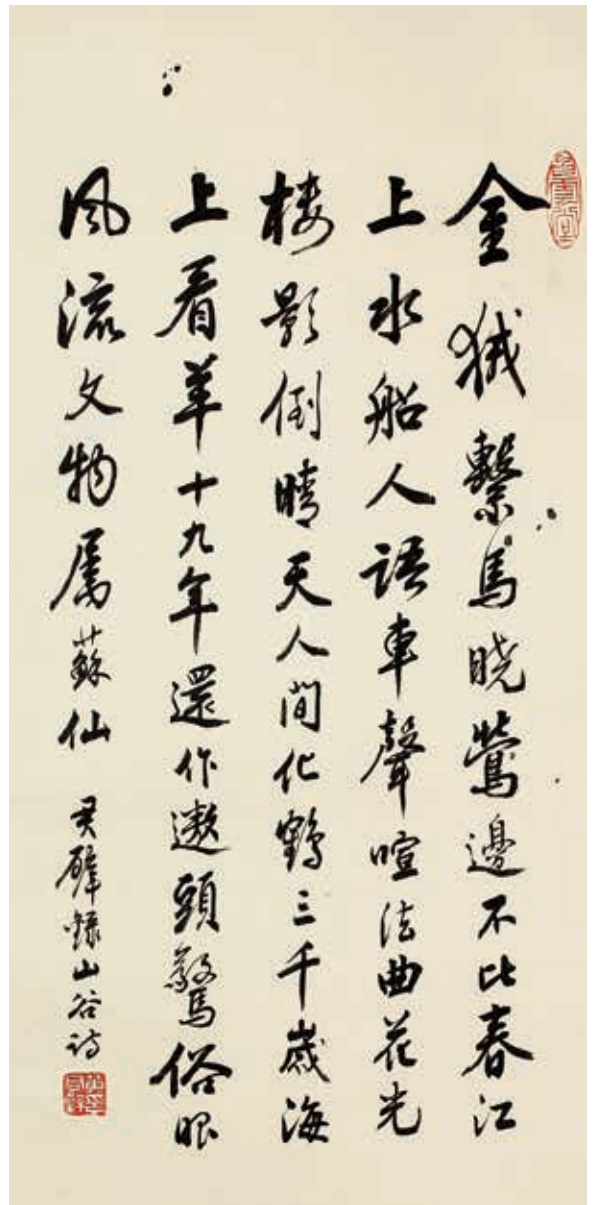 金狨繫馬晓鶯邊不比春江
上水船人語車聲喧法曲花光
楼影倒晴天人間化鶴三千歲海
上看羊十九年還作遨頭驚俗眼
風流文物屬蘇仙 君璧錄山谷詩